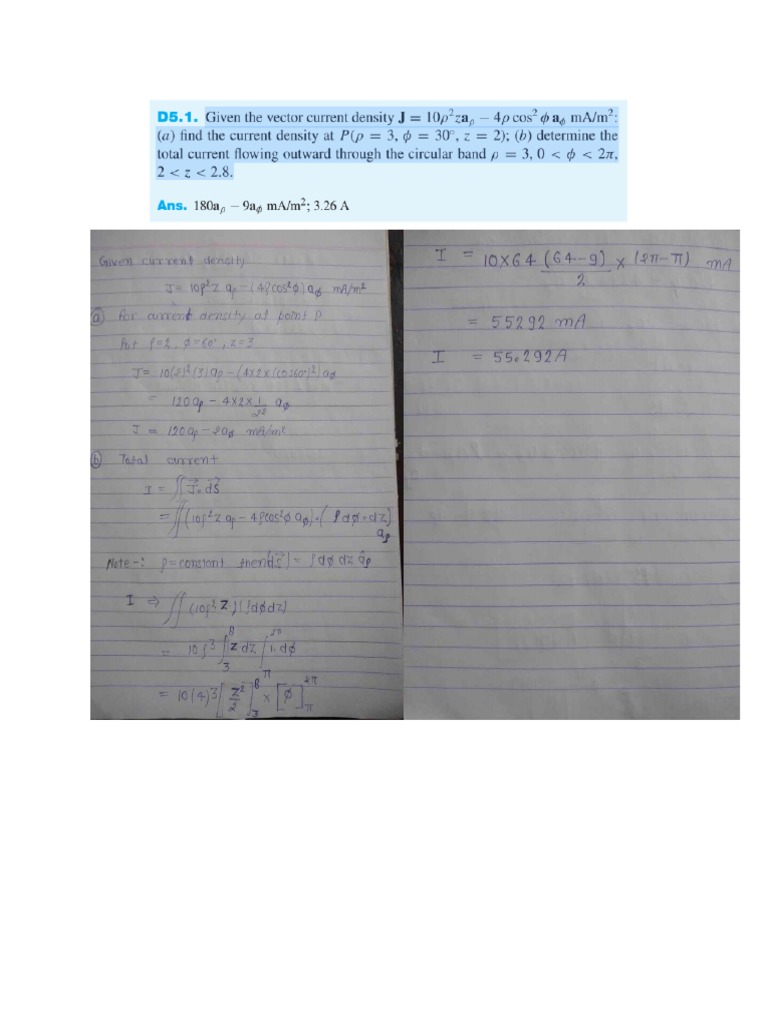 D5.1. Given the vector current density J = 10ρ²za_ρ − 4ρ cos² ϕ a_ϕ mA/m²:
(a) find the current density at P(ρ = 3, ϕ = 30°, z = 2); (b) determine the
total current flowing outward through the circular band ρ = 3, 0 < ϕ < 2π,
2 < z < 2.8.
Ans. 180a_ρ − 9a_ϕ mA/m²; 3.26 A
Given current density
J = 10ρ²z a_ρ − (4ρcos²ϕ) a_ϕ mA/m²
(a) For current density at point P
Put ρ=2, ϕ=60°, z=3
J = 10(2)²(3) a_ρ − (4×2×(cos60°)²) a_ϕ
= 120 a_ρ − 4×2×1/ a_ϕ
J = 120 a_ρ − 2a_ϕ mA/m²
(b) Total current
I = ∬ J⃗. dS⃗
= ∬ (10ρ²z a_ρ − 4ρcos²ϕ a_ϕ).(ρdϕ.dz) a_ρ
Note -: ρ = constant then |ds⃗| = ρdϕ dz â_ρ
I ⇒ ∬ (10ρ².z.)(ρdϕdz)
= 10ρ³ ∫₃⁸ z dz ∫_π^2π 1. dϕ
= 10(4)³ [z²/2]₃⁸ × [ϕ]_π^2π
I = 10×64 (64−9)/2 × (2π−π) mA
= 55292 mA
I = 55.292A